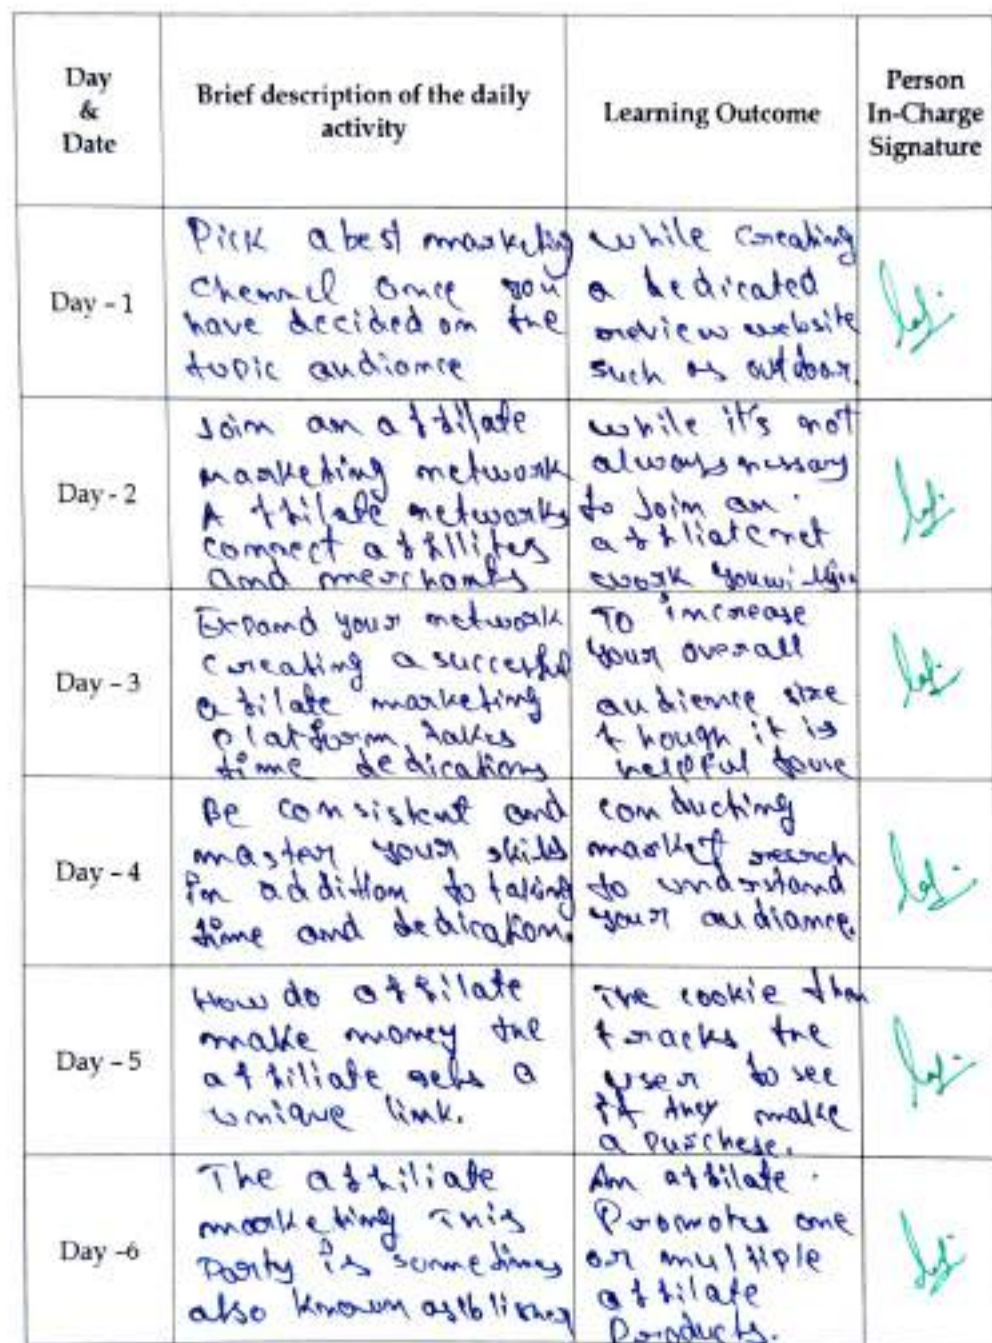 Day
&
Date
Brief description of the daily
activity
Learning Outcome
Person
In-Charge
Signature
Day - 1
Pick a best marketing
Channel once you
have decided on the
topic audiance
while creating
a dedicated
review website
such as outdoor.
Day - 2
Join an affilate
marketing network
Affilate networks
connect affilites
and merchants
while it's not
always
to Join an
affliate net
work you
Day - 3
Expand your network
creating a succesful
afilate marketing
platform takes
time dedications
To increase
your overall
audience size
though it is
helpful
Day - 4
Be consistent and
master your skills
in addition to taking
time and dedication.
conducting
market
to understand
your audiance.
Day - 5
How do affilate
make money the
affiliate gets a
unique link.
The cookie
tracks the
user to see
if they make
a purchese.
Day -6
The affiliate
marketing This
Party is sometimes
also known as
An affilate
Promotes one
or multiple
affilate
Products.